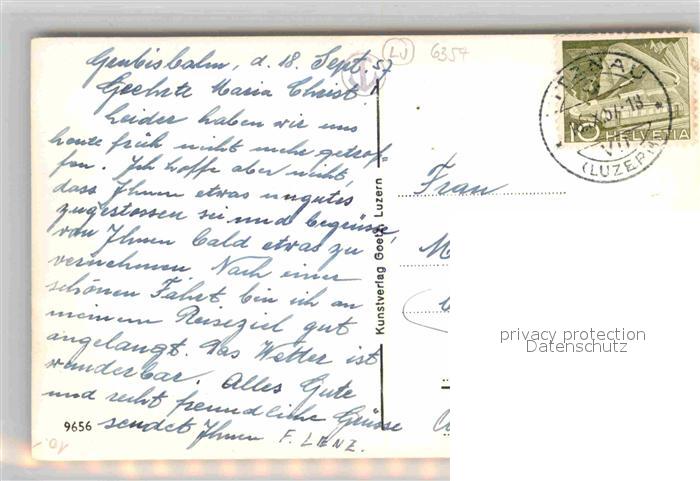 Gerbisbalm, d. 18. Sept. 57
Geehrte Maria Christ
Leider haben wir uns
heute früh nicht mehr getrof-
fen. Ich hoffe aber nicht,
dass Ihnen etwas unguts
zugestossen sei und begrüsse
von Ihnen bald etwas zu
vernehmen. Nach einer
schönen Fahrt bin ich an
meinem Reiseziel gut
angelangt. Das Wetter ist
wunderbar. Alles Gute
und recht freundliche Grüsse
sendet Ihnen F. LIENZ.
9656
10.-
LU
6354
Kunstverlag Goetz, Luzern
Frau
M
VITZNAU
(LUZERN)
10 HELVETIA
privacy protection
Datenschutz